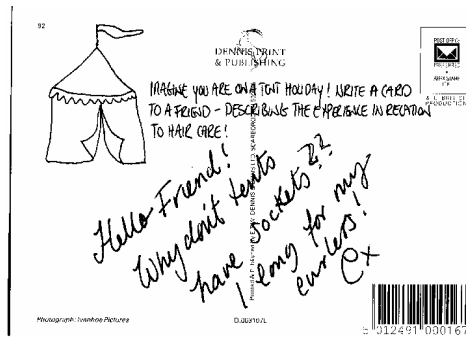 92
DENNIS PRINT
& PUBLISHING
POST OFFICE
IMAGINE YOU ARE ON A TENT HOLIDAY! WRITE A CARD
TO A FRIEND - DESCRIBING THE EXPERIENCE IN RELATION
TO HAIR CARE!
Hello Friend!
Why don't tents
have sockets??
I long for my
curlers!
Cx
Photograph: Ivanhoe Pictures
D.003107L
5 012491 000167